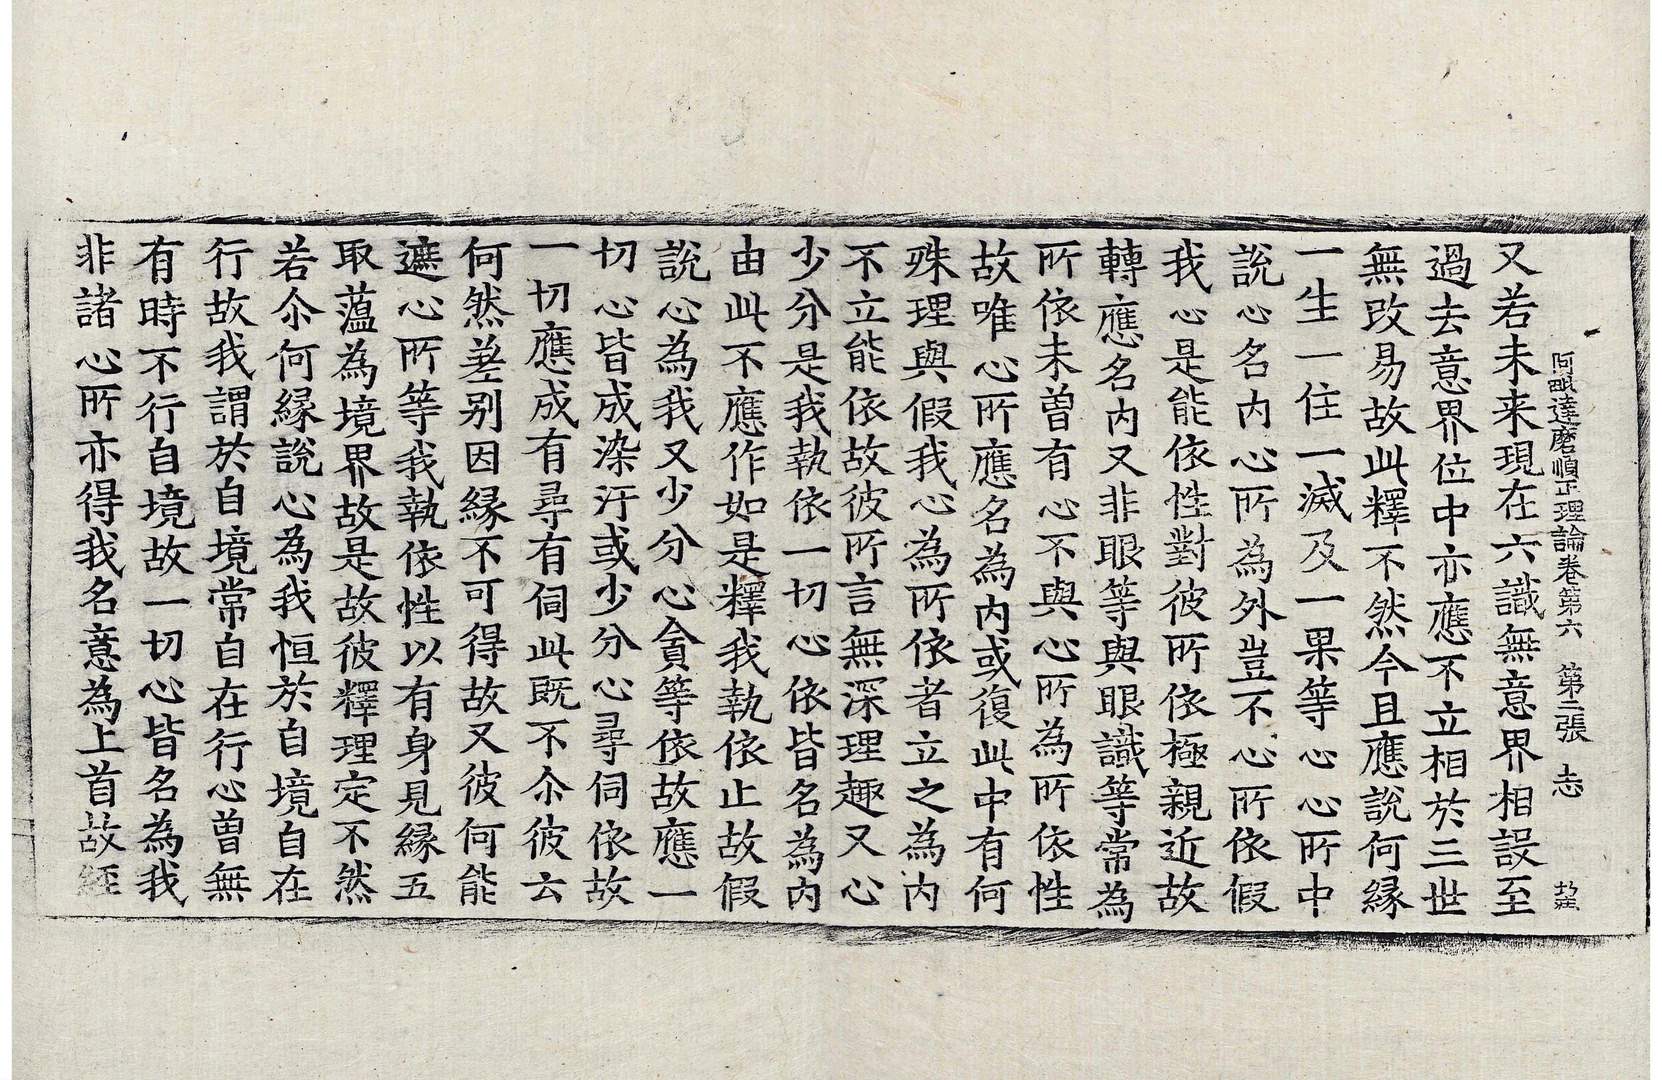 阿毗達磨順正理論卷第六　第二張　志
又若未来現在六識無意界相設至
過去意界位中亦應不立相於三世
無改易故此釋不然今且應說何緣
一生一住一滅及一果等心心所中
說心名内心所為外豈不心所依假
我心是能依性對彼所依極親近故
轉應名内又非眼等與眼識等常為
所依未曽有心不與心所為所依性
故唯心所應名為内或復此中有何
殊理與假我心為所依者立之為内
不立能依故彼所言無深理趣又心
少分是我執依一切心依皆名為内
由此不應作如是釋我執依止故假
說心為我又少分心貪等依故應一
切心皆成染汙或少分心尋伺依故
一切應成有尋有伺此既不尒彼云
何然差别因緣不可得故又彼何能
遮心所等我執依性以有身見緣五
取蘊為境界故是故彼釋理定不然
若尒何緣說心為我恒於自境自在
行故我謂於自境常自在行心曽無
有時不行自境故一切心皆名為我
非諸心所亦得我名意為上首故經